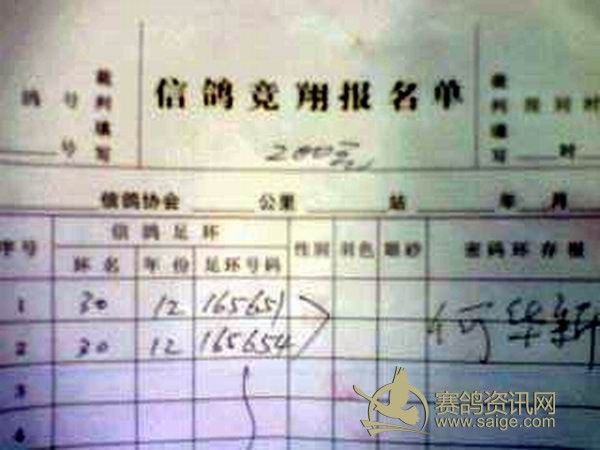 信鸽竞翔报名单
裁判填写
鸽号
号
裁判填写
时
200元
信鸽协会 公里 站 年 月
序号 信鸽足环 性别 羽色 眼砂 密码环存根
环名 年份 足环号码
1 30 12 165651 何华新
2 30 12 165654
3
4
赛鸽资讯网
www.saige.com